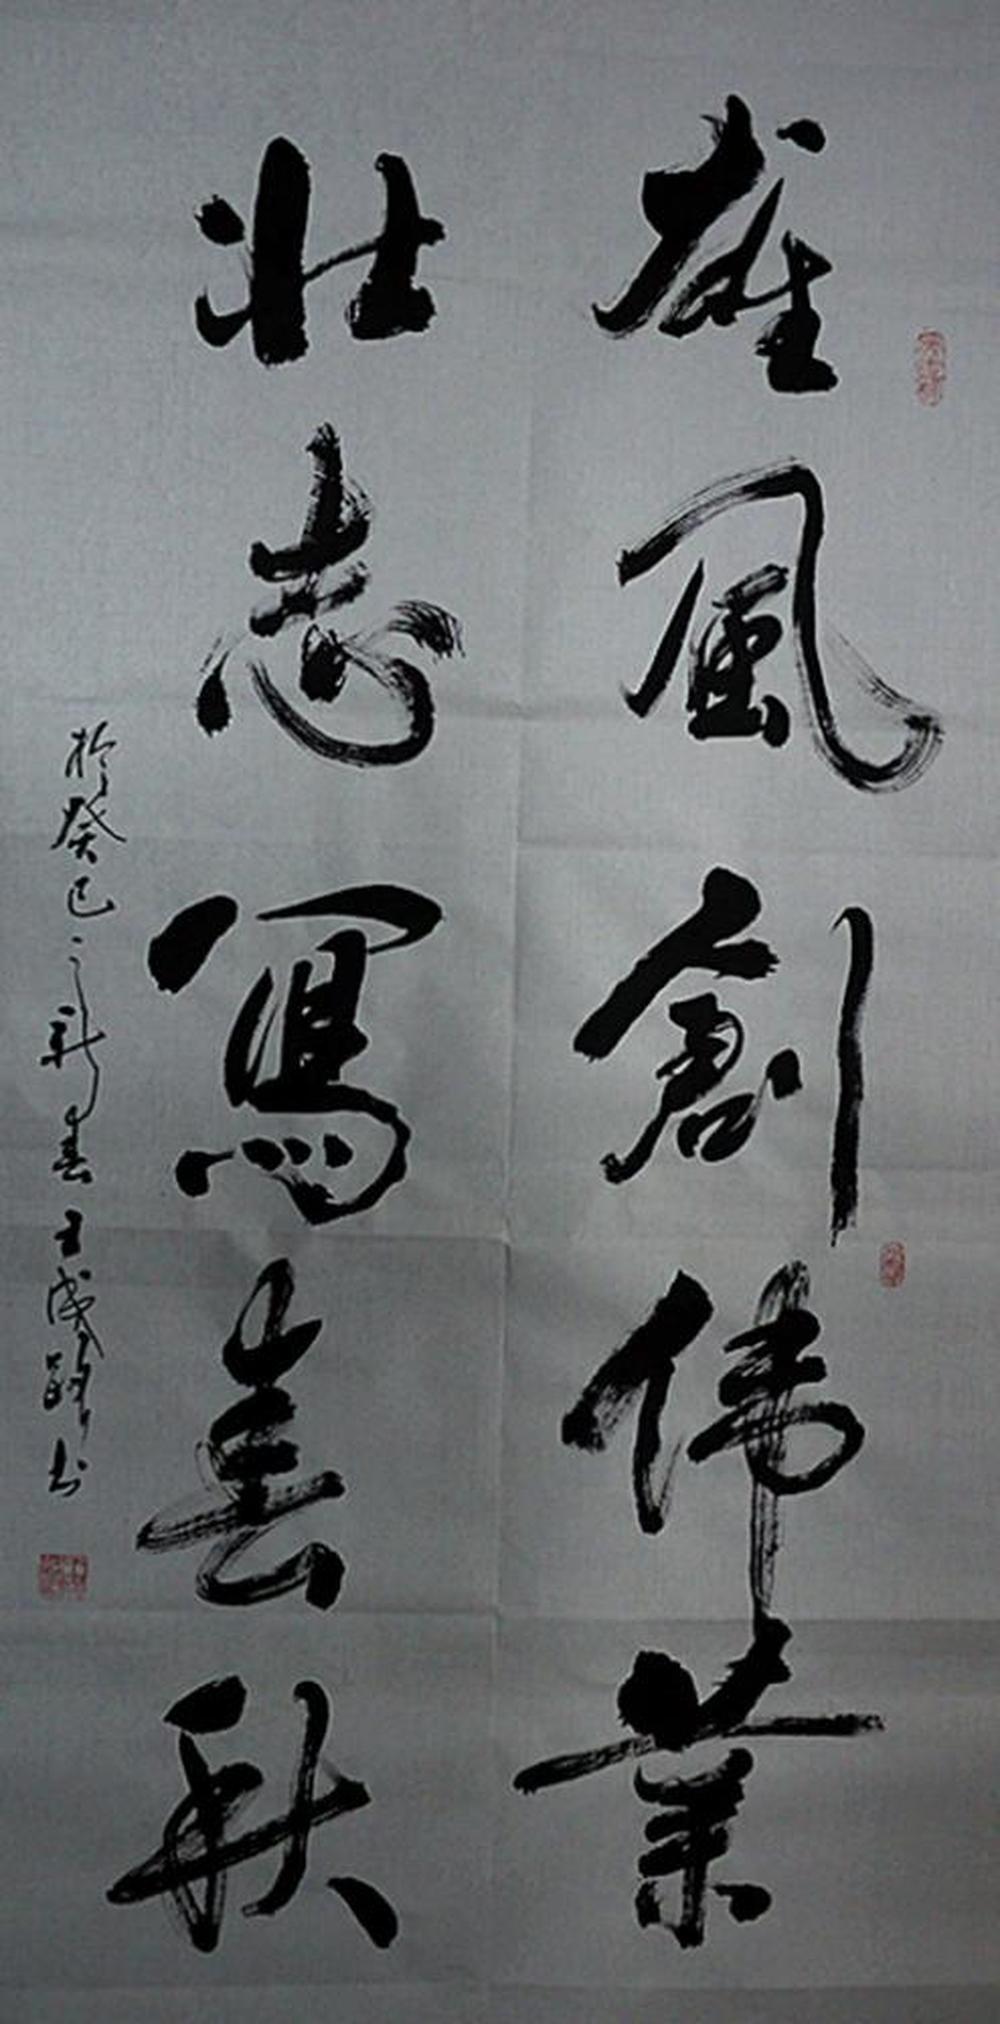 雄風創偉業
壯志寫春秋
於癸巳之新春王成路书